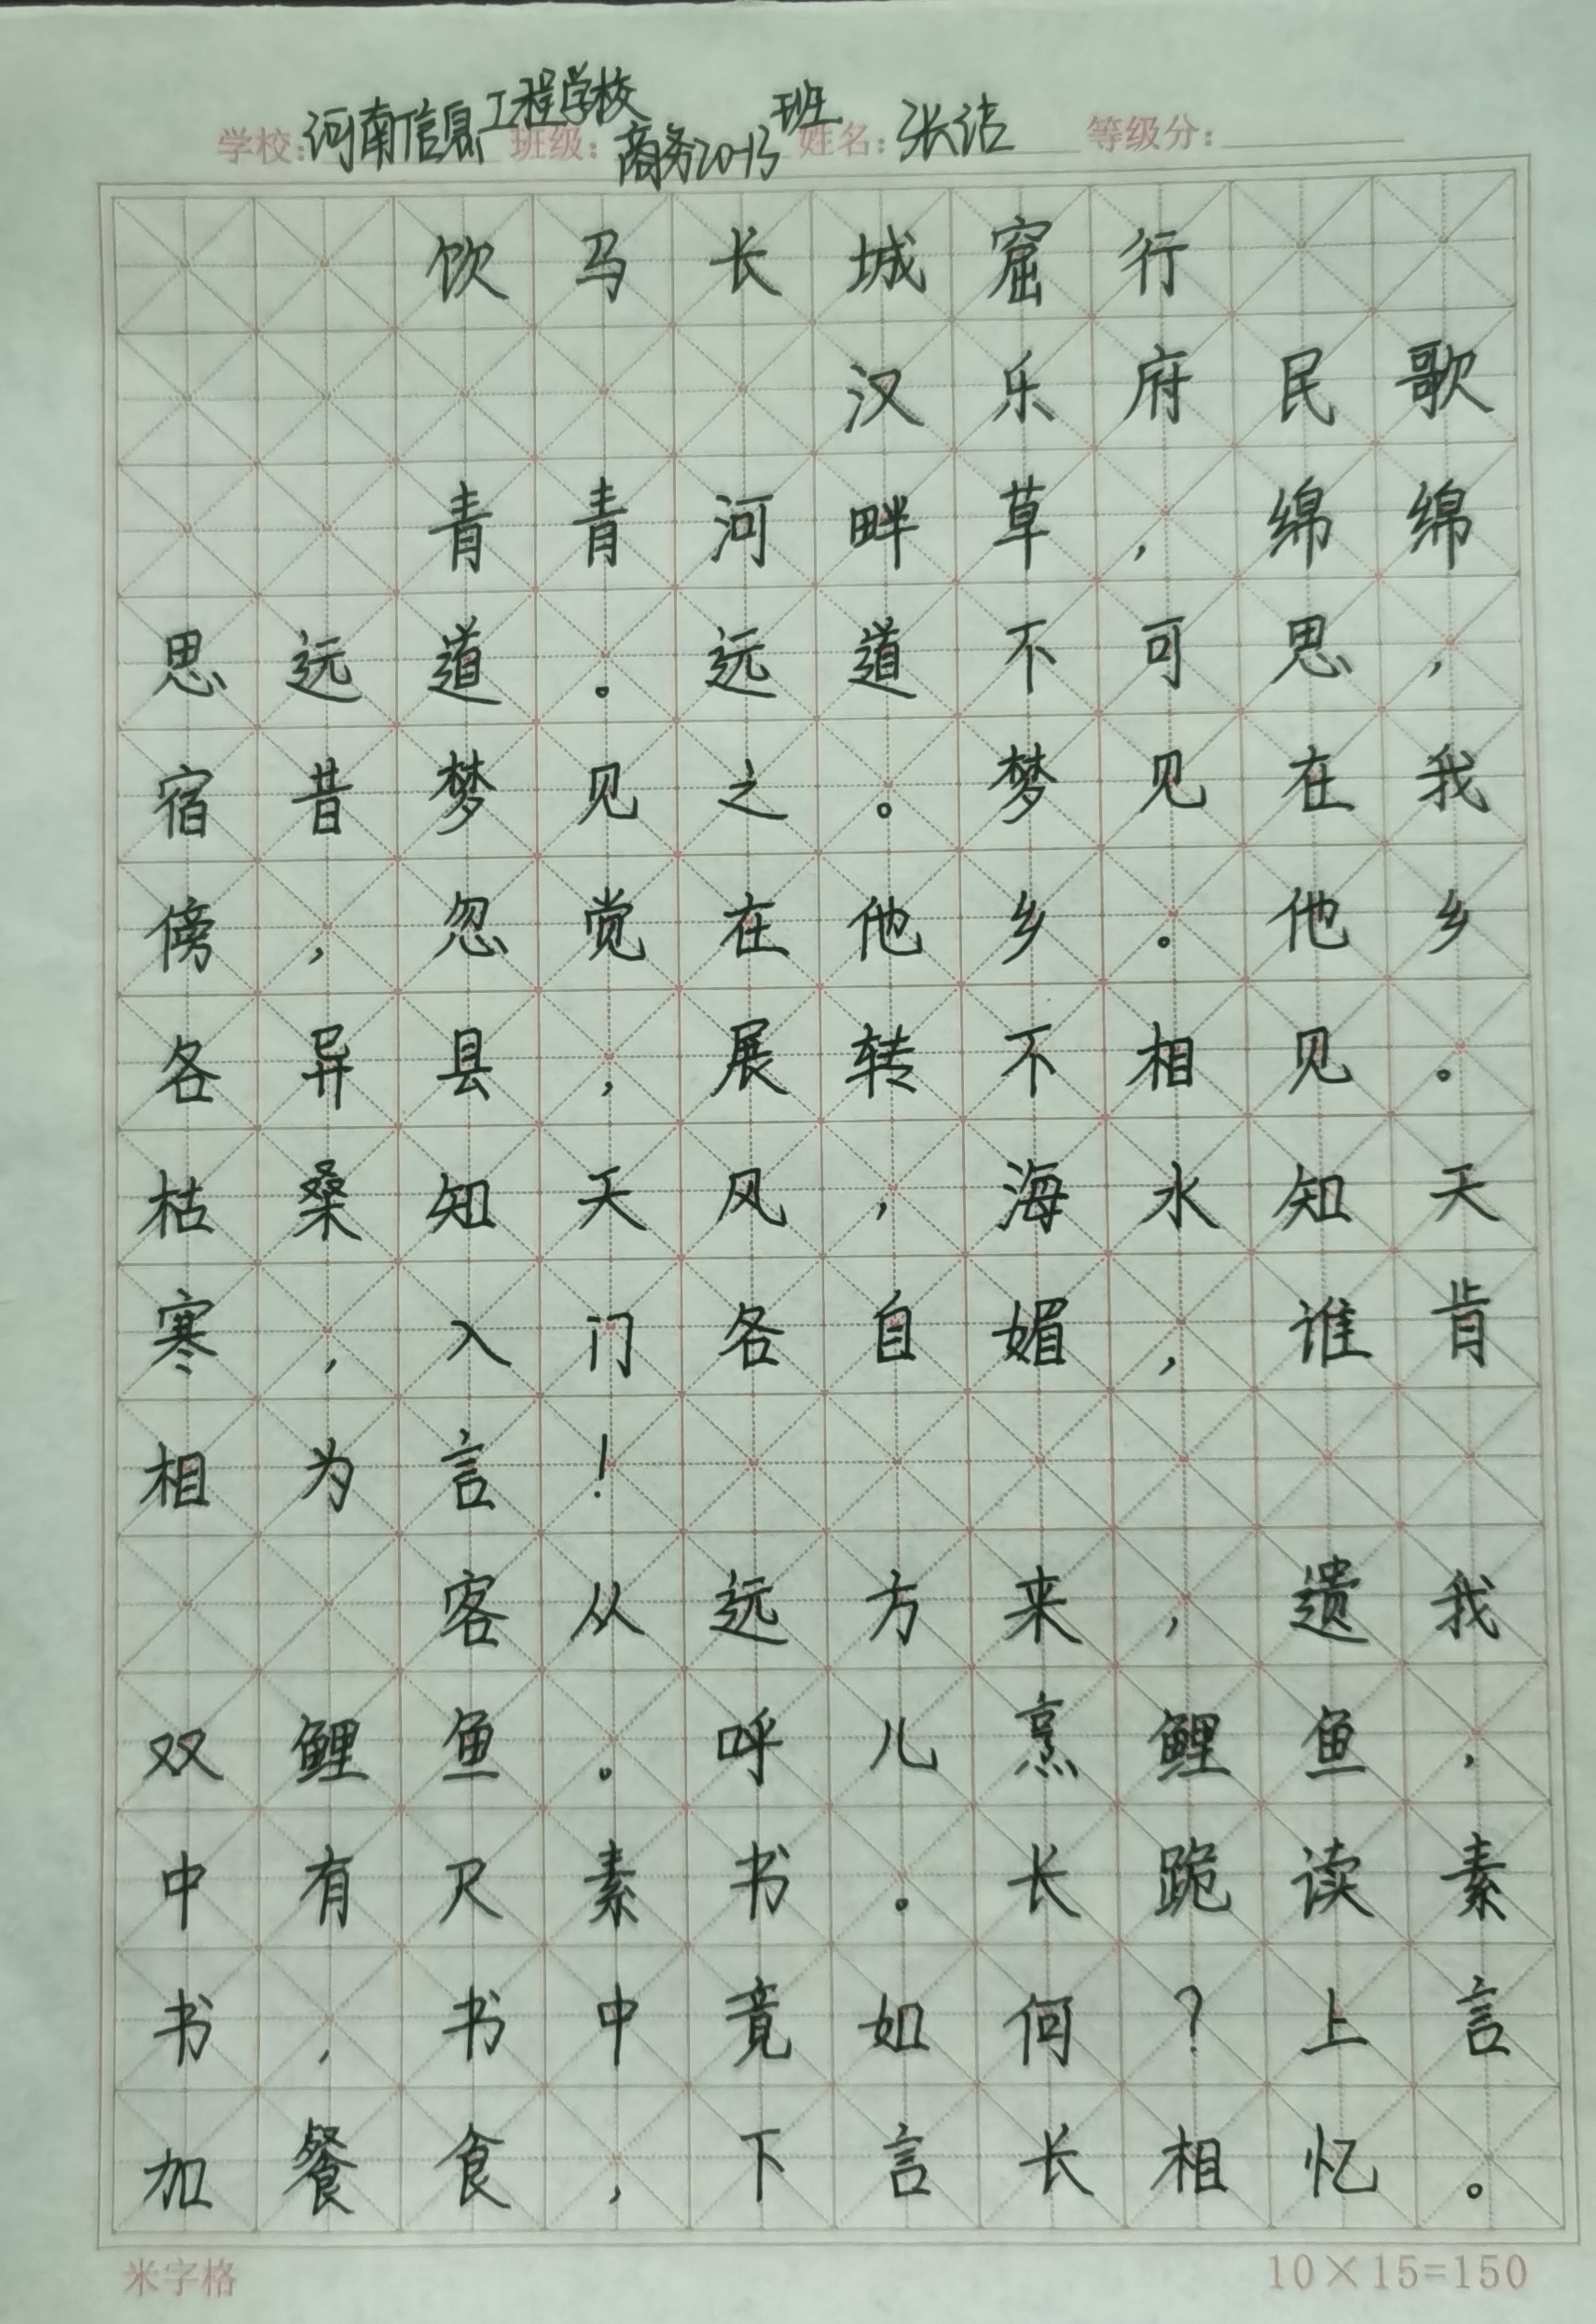 学校:河南信息工程学校 班级:商务20-13班 姓名:张洁 等级分:
饮马长城窟行
汉乐府民歌
青青河畔草,绵绵
思远道。远道不可思,
宿昔梦见之。梦见在我
傍,忽觉在他乡。他乡
各异县,展转不相见。
枯桑知天风,海水知天
寒,入门各自媚,谁肯
相为言!
客从远方来,遗我
双鲤鱼。呼儿烹鲤鱼,
中有尺素书。长跪读素
书,书中竟如何?上言
加餐食,下言长相忆。
米字格 10×15=150